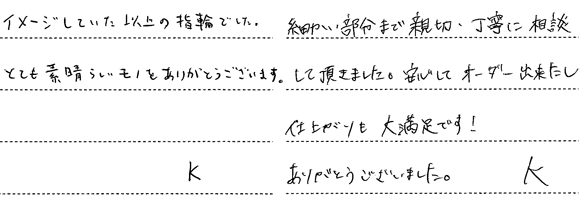 イメージしていた以上の指輪でした。
とても素晴らしいモノをありがとうございます。
K
細かい部分まで親切、丁寧に相談
して頂きました。安心してオーダー出来たし
仕上がりも大満足です！
ありがとうございました。 K